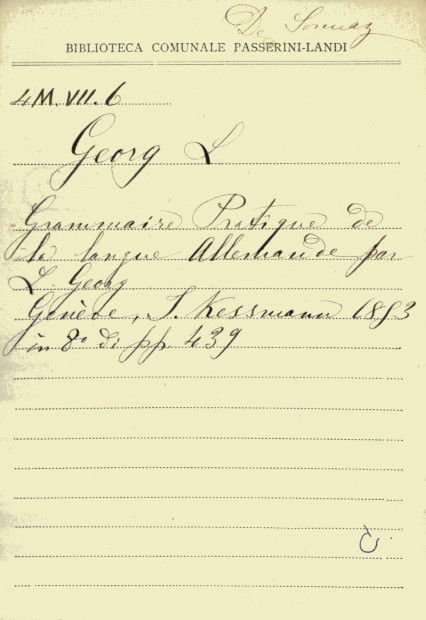 De Sonnaz
BIBLIOTECA COMUNALE PASSERINI-LANDI
4M.VII.6
Georg L
Grammaire Pratique de
la langue Allemande par
L. Georg
Genève, J. Kessmann 1853
in 8º di pp. 439